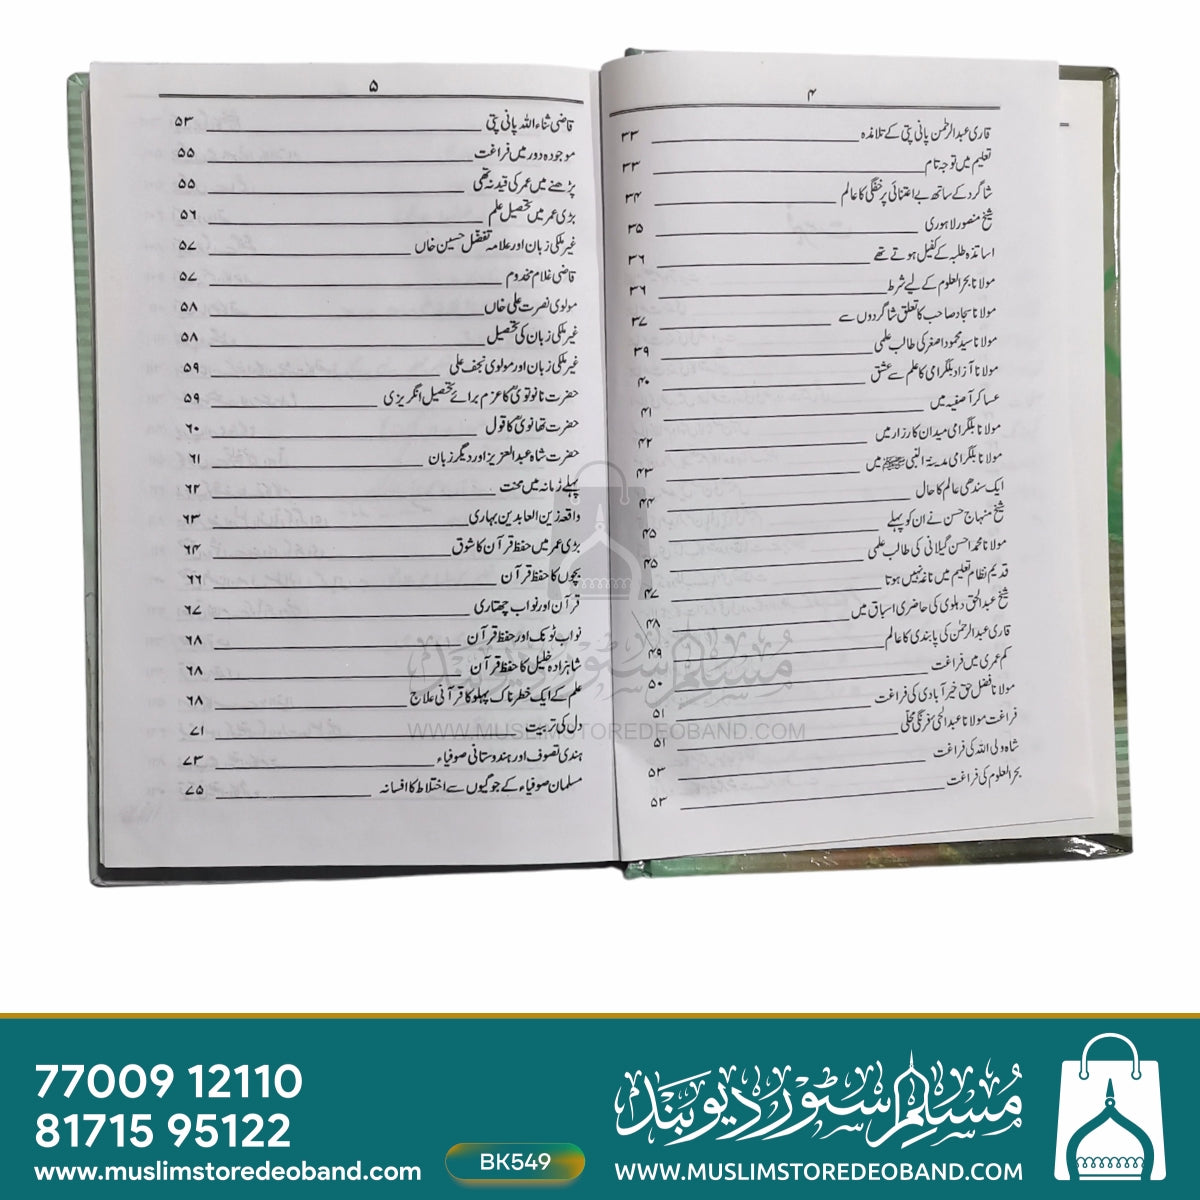 ۴
قاری عبدالرحمٰن پانی پتی کے تلامذہ ۳۳
تعلیم میں توجہ تام ۳۳
شاگرد کے ساتھ بے اعتنائی پر خفگی کا عالم ۳۴
شیخ منصور لاہوری ۳۵
اساتذہ طلبہ کے کفیل ہوتے تھے ۳۶
مولانا بحرالعلوم کے لیے شرط ۳۶
مولانا سجاد صاحب کا تعلق شاگردوں سے ۳۷
مولانا سید محمود اصغر کی طالب علمی ۳۹
مولانا آزاد بلگرامی کا علم سے عشق ۴۰
عساکر آصفیہ میں ۴۱
مولانا بلگرامی میدان کارزار میں ۴۲
مولانا بلگرامی مدینۃ النبی ﷺ میں ۴۳
ایک سندھی عالم کا حال ۴۴
شیخ منہاج حسن نے ان کو پہلے ۴۵
مولانا محمد احسن گیلانی کی طالب علمی ۴۵
قدیم نظام تعلیم میں ناغہ نہیں ہوتا ۴۷
شیخ عبدالحق دہلوی کی حاضری اسباق میں ۴۸
قاری عبدالرحمٰن کی پابندی کا عالم ۴۹
کم عمری میں فراغت ۵۰
مولانا فضل حق خیرآبادی کی فراغت ۵۱
فراغت مولانا عبدالحئ فرنگی محلی ۵۱
شاہ ولی اللہ کی فراغت ۵۳
بحرالعلوم کی فراغت ۵۳
۵
قاضی ثناء اللہ پانی پتی ۵۳
موجودہ دور میں فراغت ۵۵
پڑھنے میں عمر کی قید نہ تھی ۵۵
بڑی عمر میں تحصیل علم ۵۶
غیر ملکی زبان اور علامہ تفضّل حسین خاں ۵۷
قاضی غلام مخدوم ۵۷
مولوی نصرت علی خاں ۵۸
غیر ملکی زبان کی تحصیل ۵۸
غیر ملکی زبان اور مولوی نجف علی ۵۹
حضرت نانوتویؒ کا عزم برائے تحصیل انگریزی ۵۹
حضرت تھانویؒ کا قول ۶۰
حضرت شاہ عبدالعزیز اور دیگر زبان ۶۱
پہلے زمانہ میں محنت ۶۲
واقعہ زین العابدین بہاری ۶۳
بڑی عمر میں حفظ قرآن کا شوق ۶۴
بچوں کا حفظ قرآن ۶۶
قرآن اور نواب چھتاری ۶۷
نواب ٹونک اور حفظ قرآن ۶۸
شاہزادہ خلیل کا حفظ قرآن ۶۸
علم کے ایک خطرناک پہلو کا قرآنی علاج ۶۸
دل کی تربیت ۷۱
ہندی تصوف اور ہندوستانی صوفیاء ۷۳
مسلمان صوفیاء کے جوگیوں سے اختلاط کا افسانہ ۷۵
مسلم سٹور دیوبند
WWW.MUSLIMSTOREDEOBAND.COM
77009 12110
81715 95122
www.muslimstoredeoband.com
BK549
مسلم سٹور دیوبند
WWW.MUSLIMSTOREDEOBAND.COM